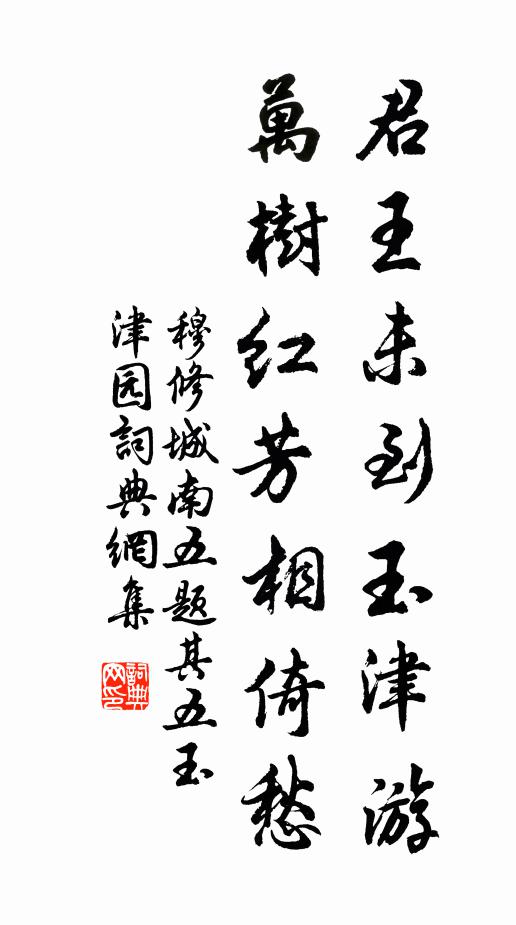 君王未到玉津游
萬樹红芳相倚愁
穆修城南五題其五玉
津园詞典網集
詞典網印